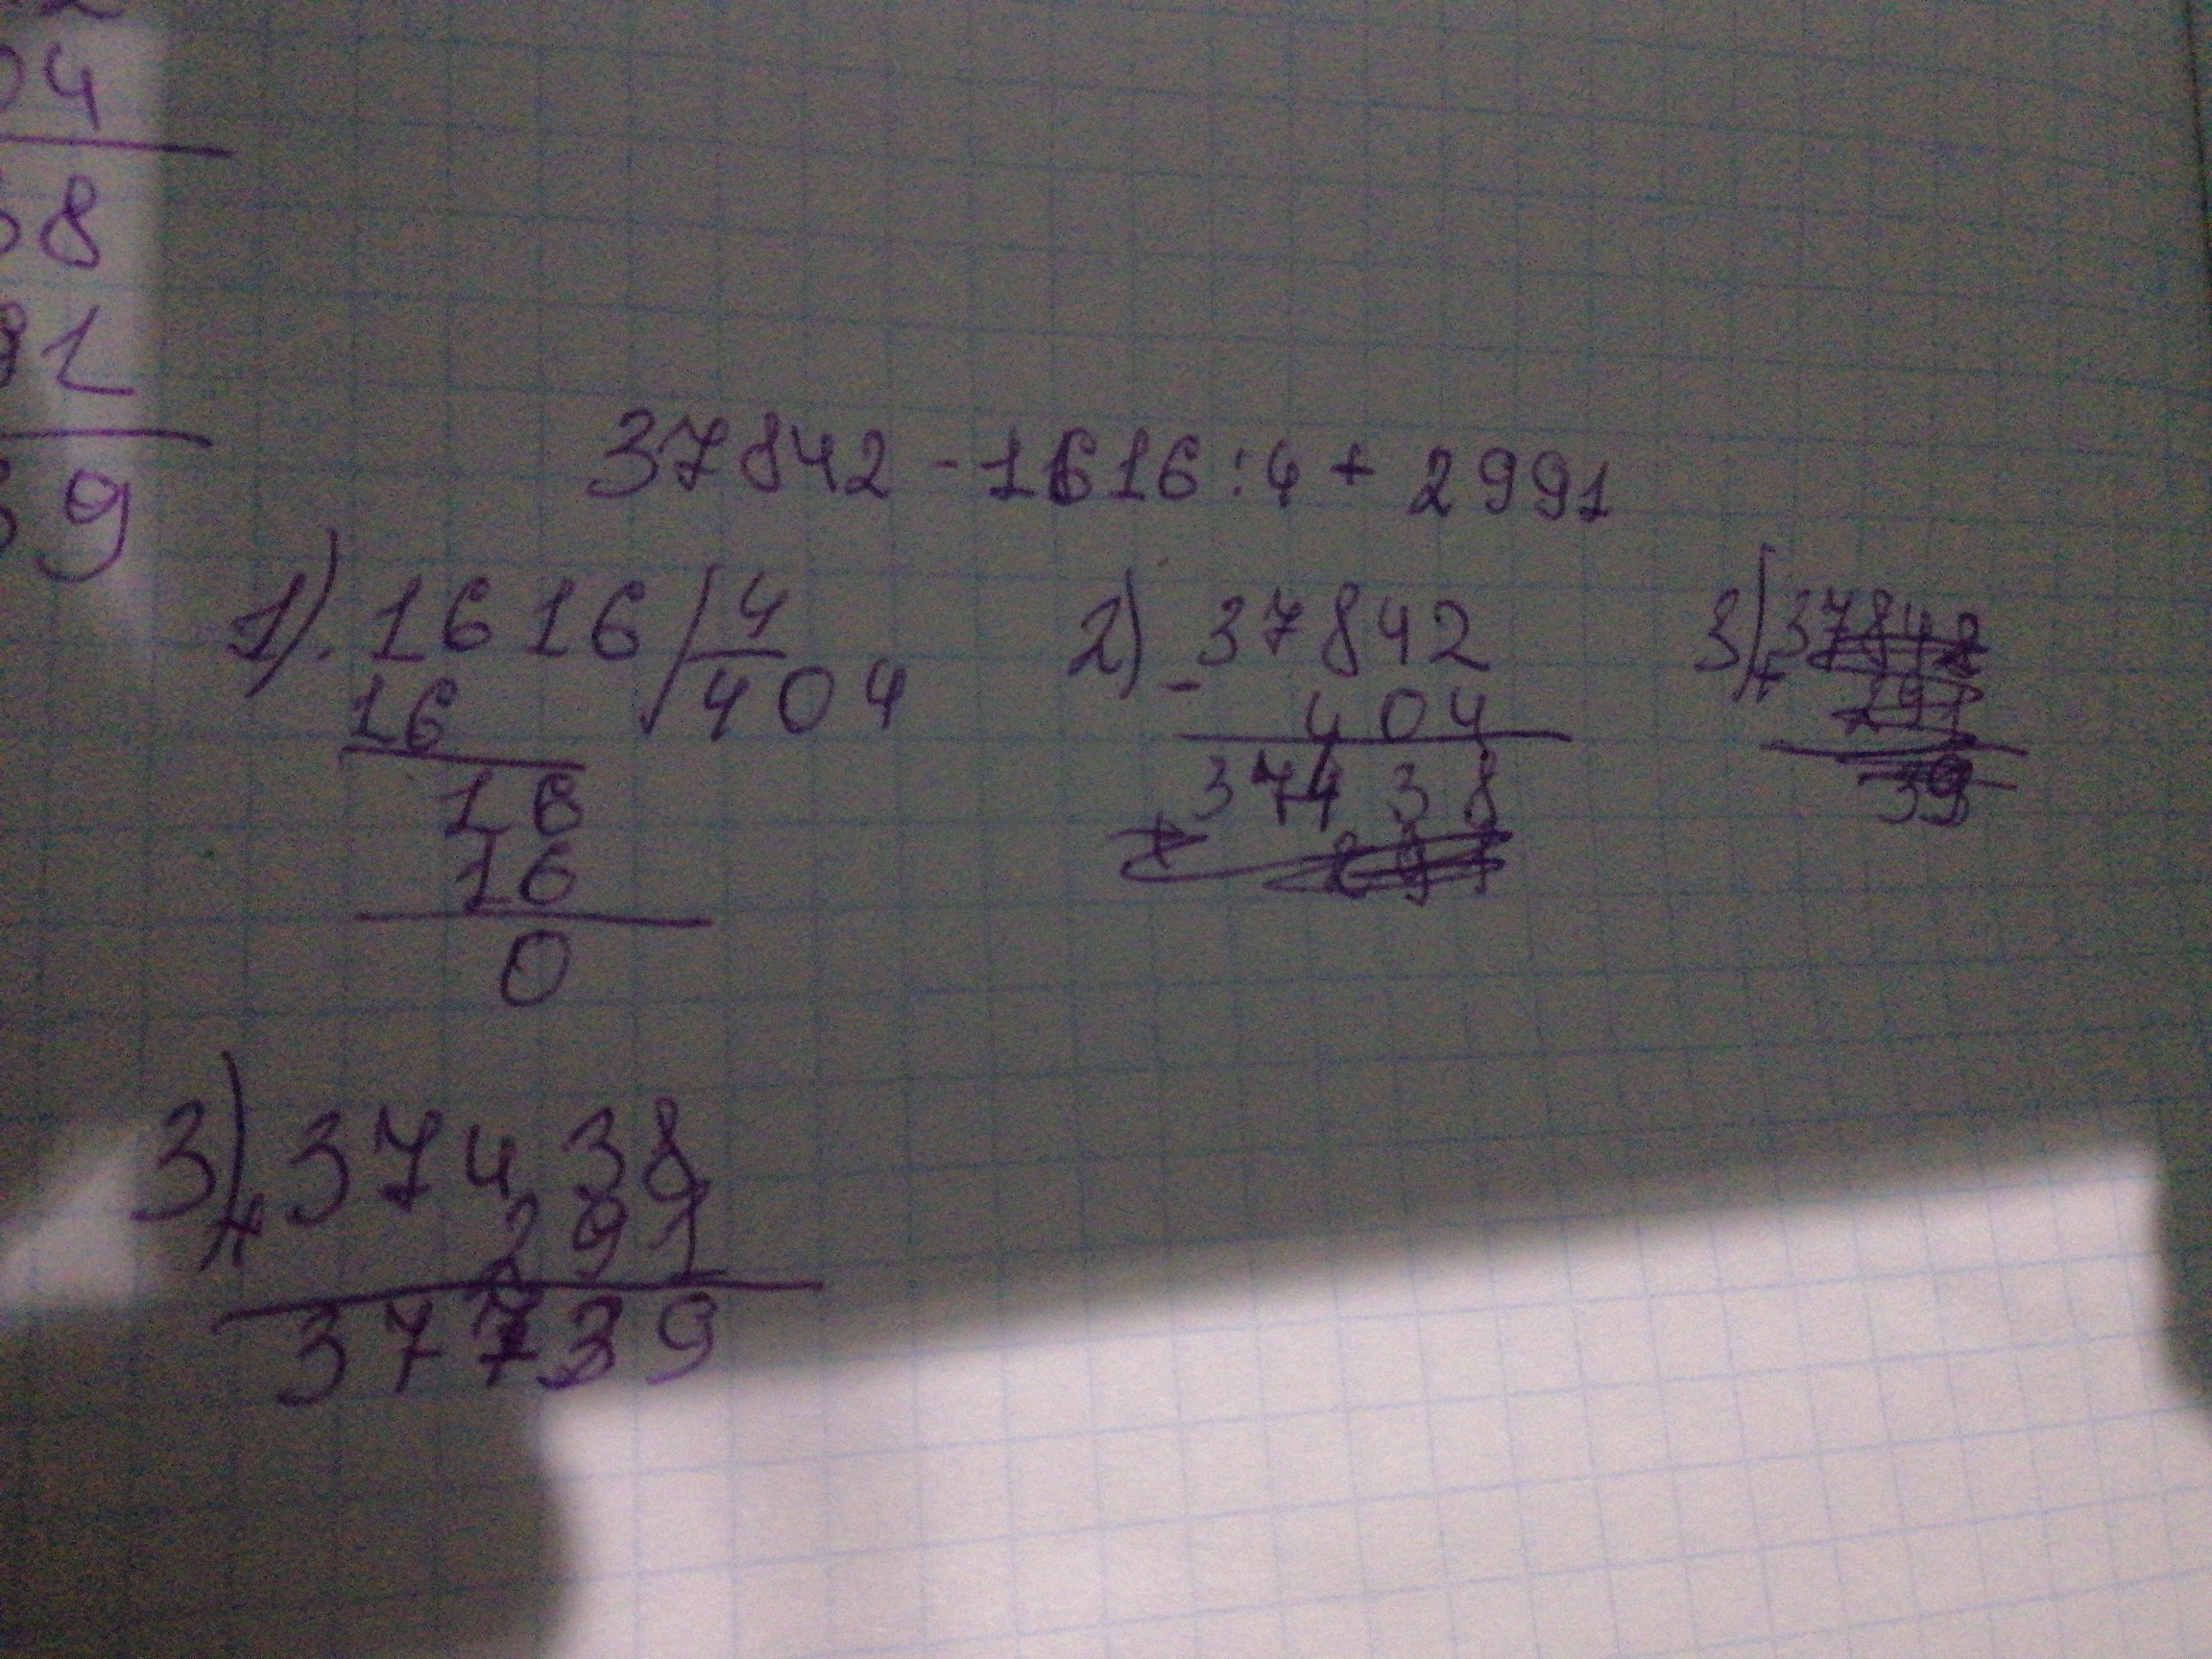 04
8
91
9
37842 - 1616 : 4 + 2991
1). 1616 / 4
16 404
16
16
0
2) - 37842
404
37438
3) + 37842
291
39
3) + 37438
291
37739